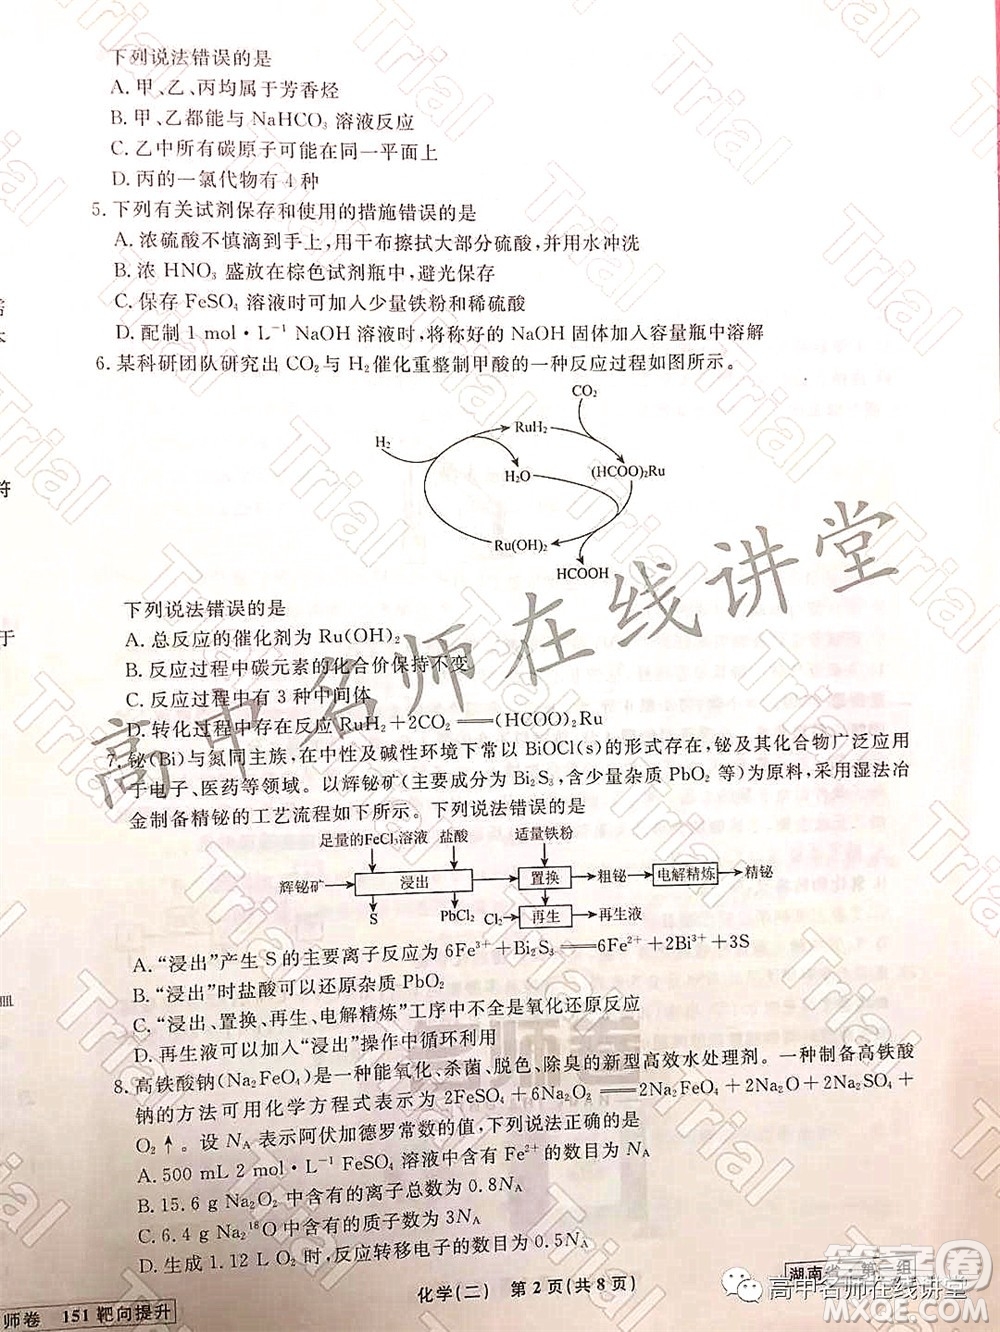 下列说法错误的是
A. 甲、乙、丙均属于芳香烃
B. 甲、乙都能与 NaHCO₃ 溶液反应
C. 乙中所有碳原子可能在同一平面上
D. 丙的一氯代物有 4 种
5. 下列有关试剂保存和使用的措施错误的是
A. 浓硫酸不慎滴到手上,用干布擦拭大部分硫酸,并用水冲洗
B. 浓 HNO₃ 盛放在棕色试剂瓶中,避光保存
C. 保存 FeSO₄ 溶液时可加入少量铁粉和稀硫酸
D. 配制 1 mol·L⁻¹ NaOH 溶液时,将称好的 NaOH 固体加入容量瓶中溶解
6. 某科研团队研究出 CO₂ 与 H₂ 催化重整制甲酸的一种反应过程如图所示。
CO₂
H₂
RuH₂
H₂O
(HCOO)₂Ru
Ru(OH)₂
HCOOH
下列说法错误的是
A. 总反应的催化剂为 Ru(OH)₂
B. 反应过程中碳元素的化合价保持不变
C. 反应过程中有 3 种中间体
D. 转化过程中存在反应 RuH₂+2CO₂══(HCOO)₂Ru
7. 铋(Bi)与氮同主族,在中性及碱性环境下常以 BiOCl(s)的形式存在,铋及其化合物广泛应用
于电子、医药等领域。以辉铋矿(主要成分为 Bi₂S₃,含少量杂质 PbO₂ 等)为原料,采用湿法冶
金制备精铋的工艺流程如下所示。下列说法错误的是
足量的FeCl₃溶液 盐酸 适量铁粉
辉铋矿 浸出 置换 粗铋 电解精炼 精铋
S PbCl₂ Cl₂ 再生 再生液
A. “浸出”产生 S 的主要离子反应为 6Fe³⁺+Bi₂S₃══6Fe²⁺+2Bi³⁺+3S
B. “浸出”时盐酸可以还原杂质 PbO₂
C. “浸出、置换、再生、电解精炼”工序中不全是氧化还原反应
D. 再生液可以在“浸出”操作中循环利用
8. 高铁酸钠(Na₂FeO₄)是一种能氧化、杀菌、脱色、除臭的新型高效水处理剂。一种制备高铁酸
钠的方法可用化学方程式表示为 2FeSO₄+6Na₂O₂══2Na₂FeO₄+2Na₂O+2Na₂SO₄+
O₂↑。设 N_A 表示阿伏加德罗常数的值,下列说法正确的是
A. 500 mL 2 mol·L⁻¹ FeSO₄ 溶液中含有 Fe²⁺的数目为 N_A
B. 15.6 g Na₂O₂ 中含有的离子总数为 0.8N_A
C. 6.4 g Na₂¹⁸O 中含有的质子数为 3N_A
D. 生成 1.12 L O₂ 时,反应转移电子的数目为 0.5N_A
化学(二) 第 2 页(共 8 页)
师卷 151 靶向提升
湖南省 第 组
高甲名师在线讲堂
高甲名师在线讲堂
答案卷
Trial
符
于
皿